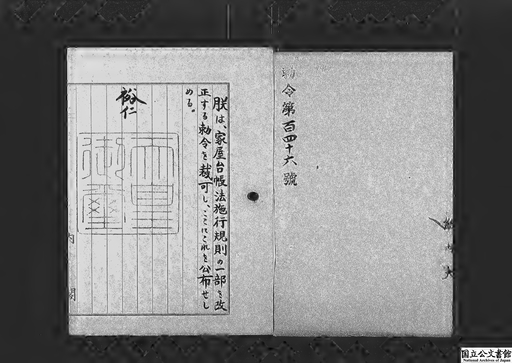 勅令第百四十六號
朕は、家屋台帳法施行規則の一部を改
正する勅令を裁可し、ここにこれを公布せし
める。
裕仁
天皇
御璽
内閣
国立公文書館
National Archives of Japan